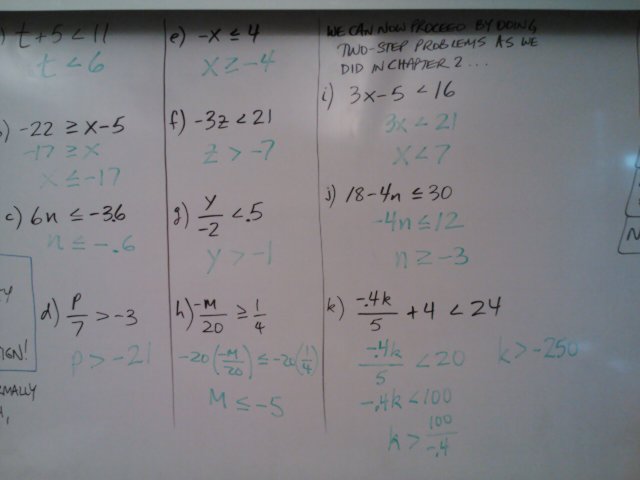 ) t + 5 < 11
t < 6
) -22 ≥ x - 5
-17 ≥ x
x ≤ -17
c) 6n ≤ -3.6
n ≤ -.6
d) P/7 > -3
P > -21
IGN!
RMALLY
e) -x ≤ 4
x ≥ -4
f) -3z < 21
z > -7
g) y/-2 < .5
y > -1
h) -M/20 ≥ 1/4
-20(-M/20) ≤ -20(1/4)
M ≤ -5
WE CAN NOW PROCEED BY DOING
TWO-STEP PROBLEMS AS WE
DID IN CHAPTER 2...
i) 3x - 5 < 16
3x < 21
x < 7
j) 18 - 4n ≤ 30
-4n ≤ 12
n ≥ -3
k) -.4k/5 + 4 < 24
-.4k/5 < 20
k > -250
-.4k < 100
k > 100/-.4
N